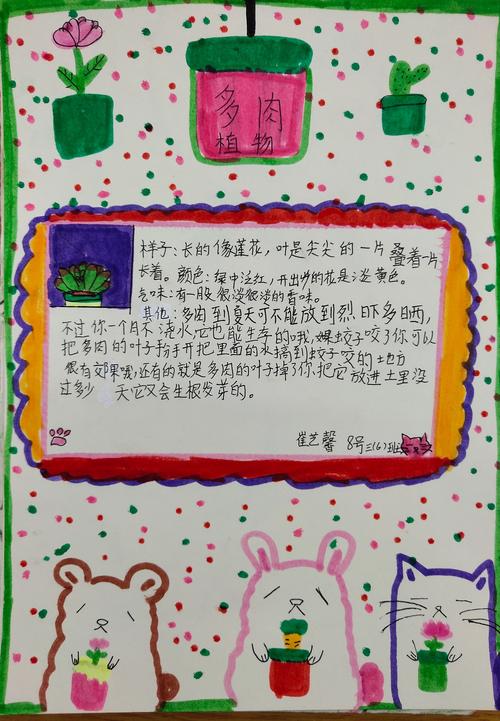 多肉
植物
样子：长的像莲花，叶是尖尖的一片叠着一片
长着。颜色：绿中泛红，开出的花是淡黄色。
气味：有一股很淡很淡的香味。
其他：多肉到夏天可不能放到烈日下多晒，
不过你一个月不浇水它也能生存的哦，蚊子咬了你可以
把多肉的叶子掰开把里面的水搞到蚊子咬的地方
很有效果哦，还有的就是多肉的叶子掉了你把它放进土里没
过多少天它又会生根发芽的。
崔艺馨 8号三(6)班